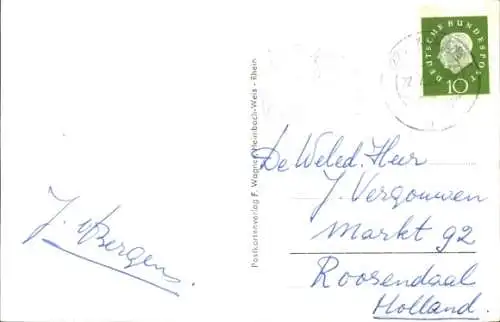 DEUTSCHE BUNDESPOST
10
Postkartenverlag F. Wagner, Weis - Rhein
De Weled. Heer
J. Vergouwen
Markt 92
Roosendaal
Holland.
J. v Bergen.